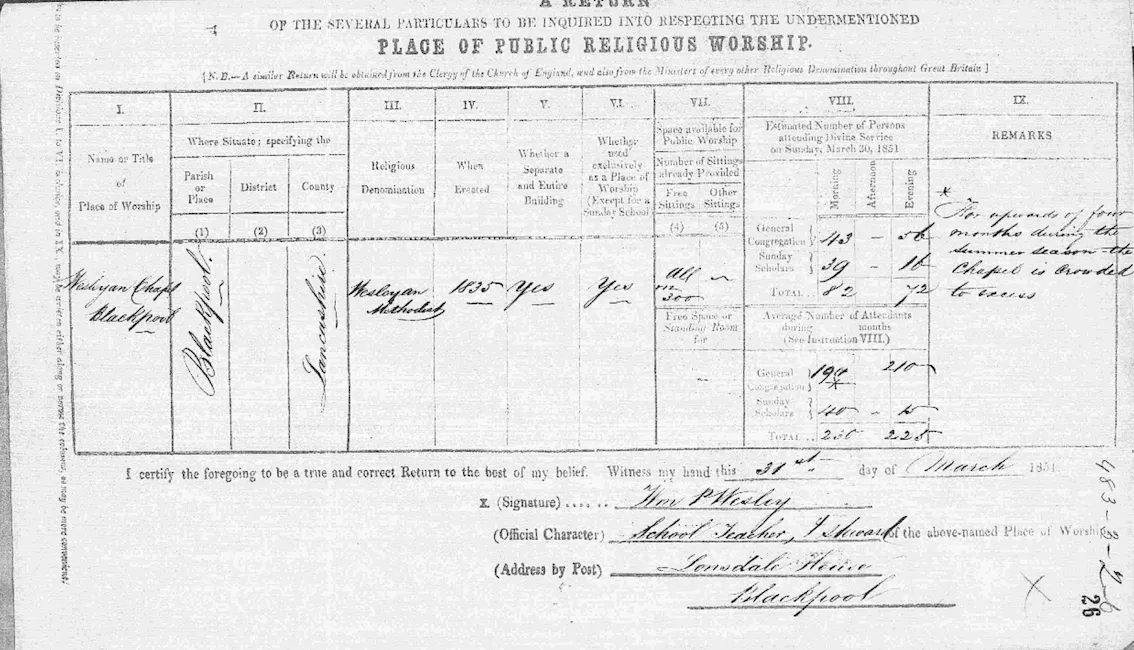 A RETURN
OF THE SEVERAL PARTICULARS TO BE INQUIRED INTO RESPECTING THE UNDERMENTIONED
PLACE OF PUBLIC RELIGIOUS WORSHIP.
[N.B.—A similar Return will be obtained from the Clergy of the Church of England, and also from the Ministers of every other Religious Denomination throughout Great Britain]
I. II. III. IV. V. VI. VII. VIII. IX.
Name or Title
of
Place of Worship
Where Situate; specifying the
Parish
or
Place
(1)
District
(2)
County
(3)
Religious
Denomination
When
Erected
Whether a
Separate
and Entire
Building
Whether
used
exclusively
as a Place of
Worship
(Except for a
Sunday School)
Space available for
Public Worship
Number of Sittings
already Provided
Free
Sittings
(4)
Other
Sittings
(5)
Estimated Number of Persons
attending Divine Service
on Sunday, March 30, 1851
Morning
Afternoon
Evening
REMARKS
Wesleyan Chapl
Blackpool
Blackpool.
Lancashire.
Wesleyan
Methodist
1835
Yes
Yes
all
300
Free Space or
Standing Room
for
General
Congregation } 43 – 56
Sunday
Scholars } 39 – 16
TOTAL .. 82 72
Average Number of Attendants
during months
(See Instruction VIII.)
General
Congregation } 190 210
*
Sunday
Scholars } 40 – 15
TOTAL .. 230 225
*
For upwards of four
months during the
summer season the
Chapel is crowded
to excess
I certify the foregoing to be a true and correct Return to the best of my belief. Witness my hand this 31st day of March 1851.
X (Signature) ...... Wm P Wesley
(Official Character) School Teacher, & steward of the above-named Place of Worship
(Address by Post) Lonsdale House
Blackpool
483-2-
26
X